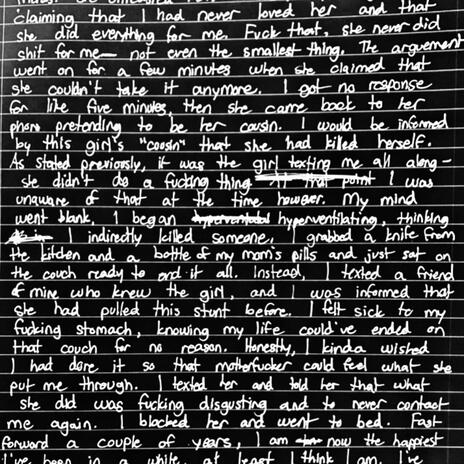 claiming that I had never loved her and that
she did everything for me. Fuck that, she never did
shit for me— not even the smallest thing. The argument
went on for a few minutes when she claimed that
she couldn't take it anymore. I got no response
for like five minutes, then she came back to her
phone pretending to be her cousin. I would be informed
by this girl's "cousin" that she had killed herself.
As stated previously, it was the girl texting me all along–
she didn't do a fucking thing. At that point I was
unaware of that at the time however. My mind
went blank, I began hyperventilating, thinking
I indirectly killed someone. I grabbed a knife from
the kitchen and a bottle of my mom's pills and just sat on
the couch ready to end it all. Instead, I texted a friend
of mine who knew the girl, and I was informed that
she had pulled this stunt before. I felt sick to my
fucking stomach, knowing my life could've ended on
that couch for no reason. Honestly, I kinda wished
I had done it so that motherfucker could feel what she
put me through. I texted her and told her that what
she did was fucking disgusting and to never contact
me again. I blocked her and went to bed. Fast
forward a couple of years, I am now the happiest
I've been in a while, at least I think I am. I've